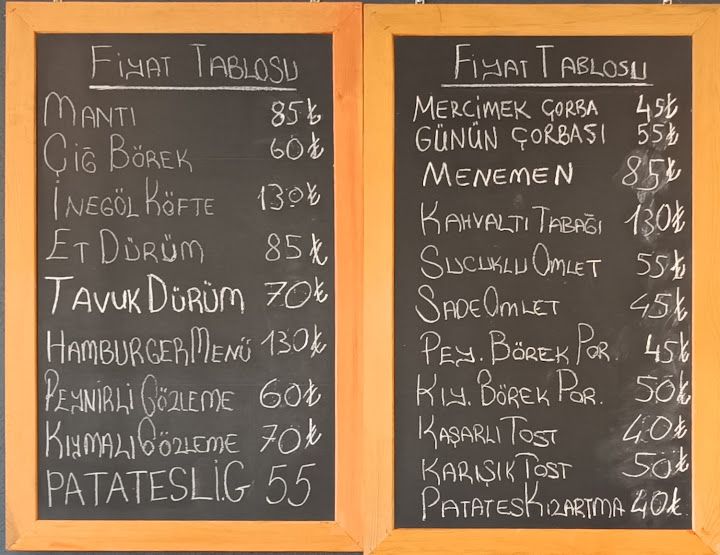 FİYAT TABLOSU
MANTI 85₺
ÇİĞ BÖREK 60₺
İNEGÖL KÖFTE 130₺
ET DÜRÜM 85₺
TAVUK DÜRÜM 70₺
HAMBURGER MENÜ 130₺
PEYNİRLİ GÖZLEME 60₺
KIYMALI GÖZLEME 70₺
PATATESLİG 55
FİYAT TABLOSU
MERCİMEK ÇORBA 45₺
GÜNÜN ÇORBAŞI 55₺
MENEMEN 85₺
KAHVALTI TABAĞI 130₺
SUCUKLU OMLET 55₺
SADE OMLET 45₺
PEY. BÖREK POR. 45₺
KIY. BÖREK POR. 50₺
KAŞARLI TOST 40₺
KARIŞIK TOST 50₺
PATATES KIZARTMA 40₺